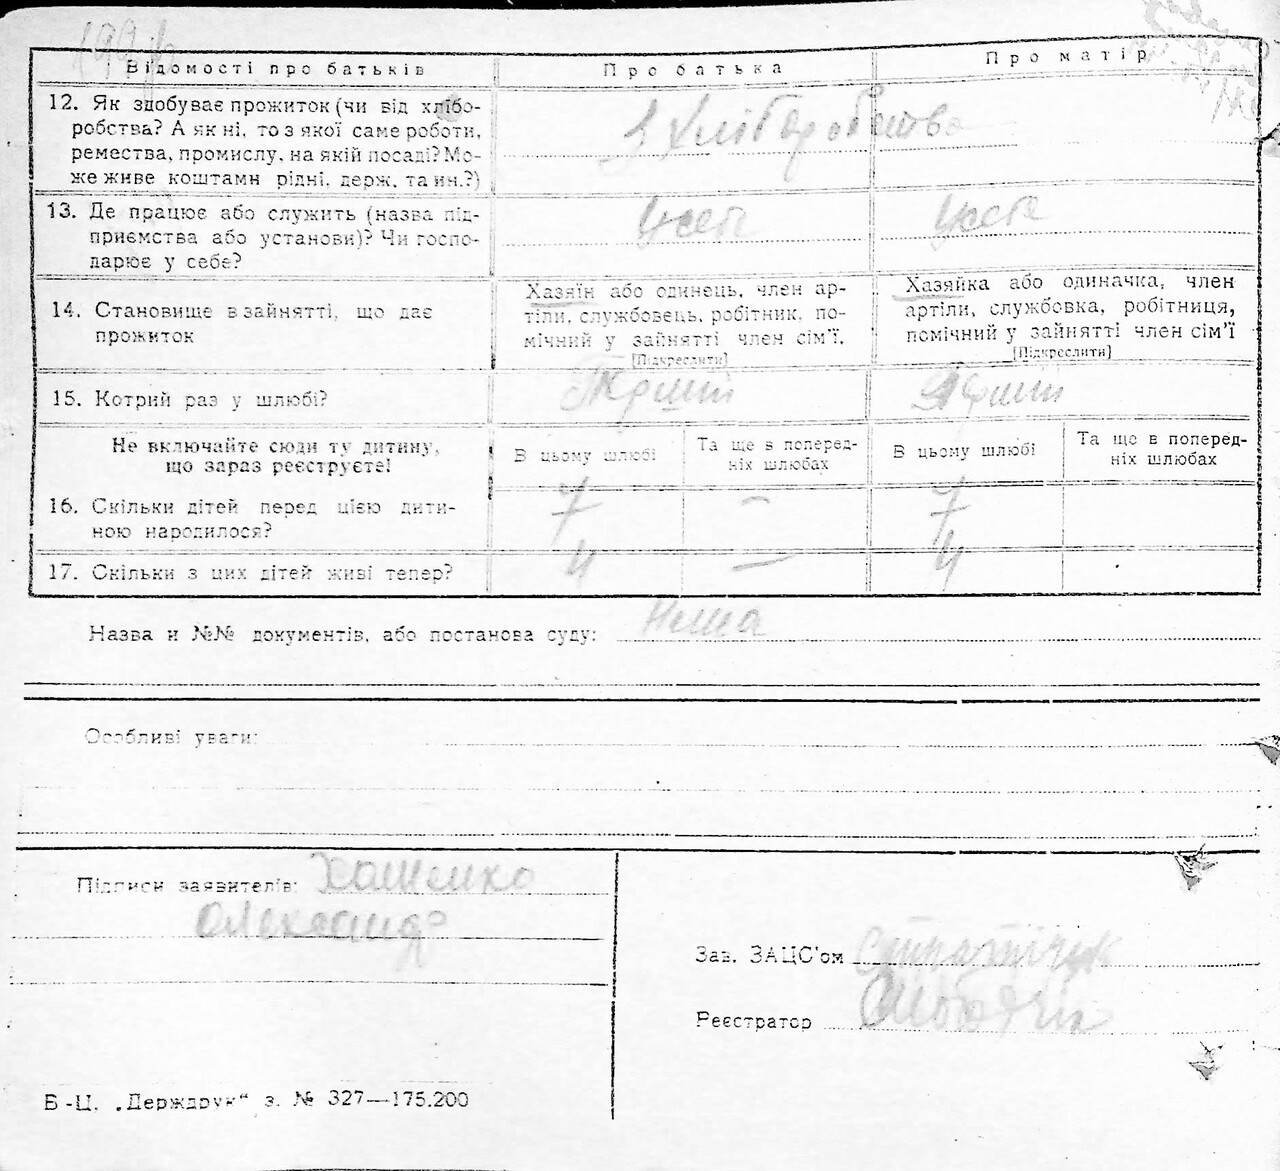 Відомості про батьків Про батька Про матір
12. Як здобуває прожиток (чи від хлібо-
робства? А як ні, то з якої саме роботи,
ремества, промислу, на якій посаді? Мо-
же живе коштами рідні, держ. та ин.?)
З Хліборобства
13. Де працює або служить (назва під-
приємства або установи)? Чи госпо-
дарює у себе?
Усебе Усебе
14. Становище в зайнятті, що дає
прожиток
Хазяїн або одинець, член ар-
тіли, службовець, робітник, по-
мічний у зайнятті член сім'ї.
[Підкреслити]
Хазяйка або одиначка, член
артіли, службовка, робітниця,
помічний у зайнятті член сім'ї
[Підкреслити]
15. Котрий раз у шлюбі?
Перший Перший
Не включайте сюди ту дитину,
що зараз реєструєте!
В цьому шлюбі
Та ще в поперед-
ніх шлюбах
В цьому шлюбі
Та ще в поперед-
ніх шлюбах
16. Скільки дітей перед цією дити-
ною народилося?
7 — 7
17. Скільки з цих дітей живі тепер? 4 — 4
Назва и №№ документів, або постанова суду: Нема
Особливі уваги:
Підписи заявителів: Хоменко
Олександр
Зав. ЗАЦС'ом
Реєстратор
Б-Ц. „Держдрук“ з. № 327—175.200